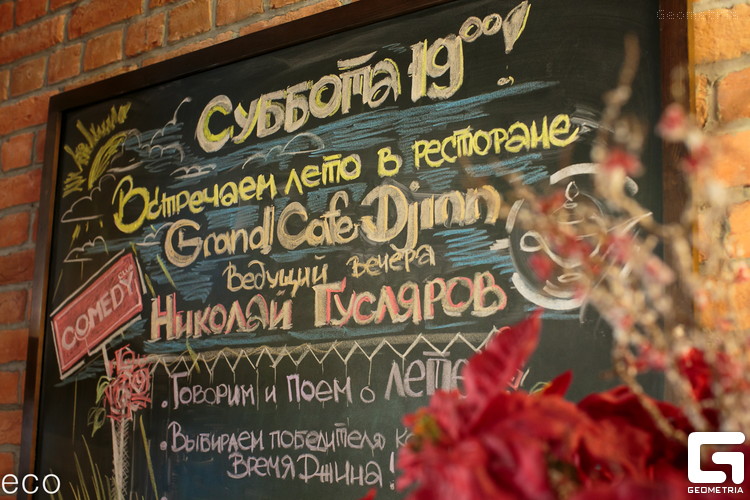 Суббота 19⁰⁰!
Встречаем лето в ресторане
Grand Cafe Djinn
Ведущий вечера
COMEDY CLUB
Николай Гусляров
. Говорим и поем о лете
. Выбираем победителя
Время Джина!
eco
Geometria
GEOMETRIA